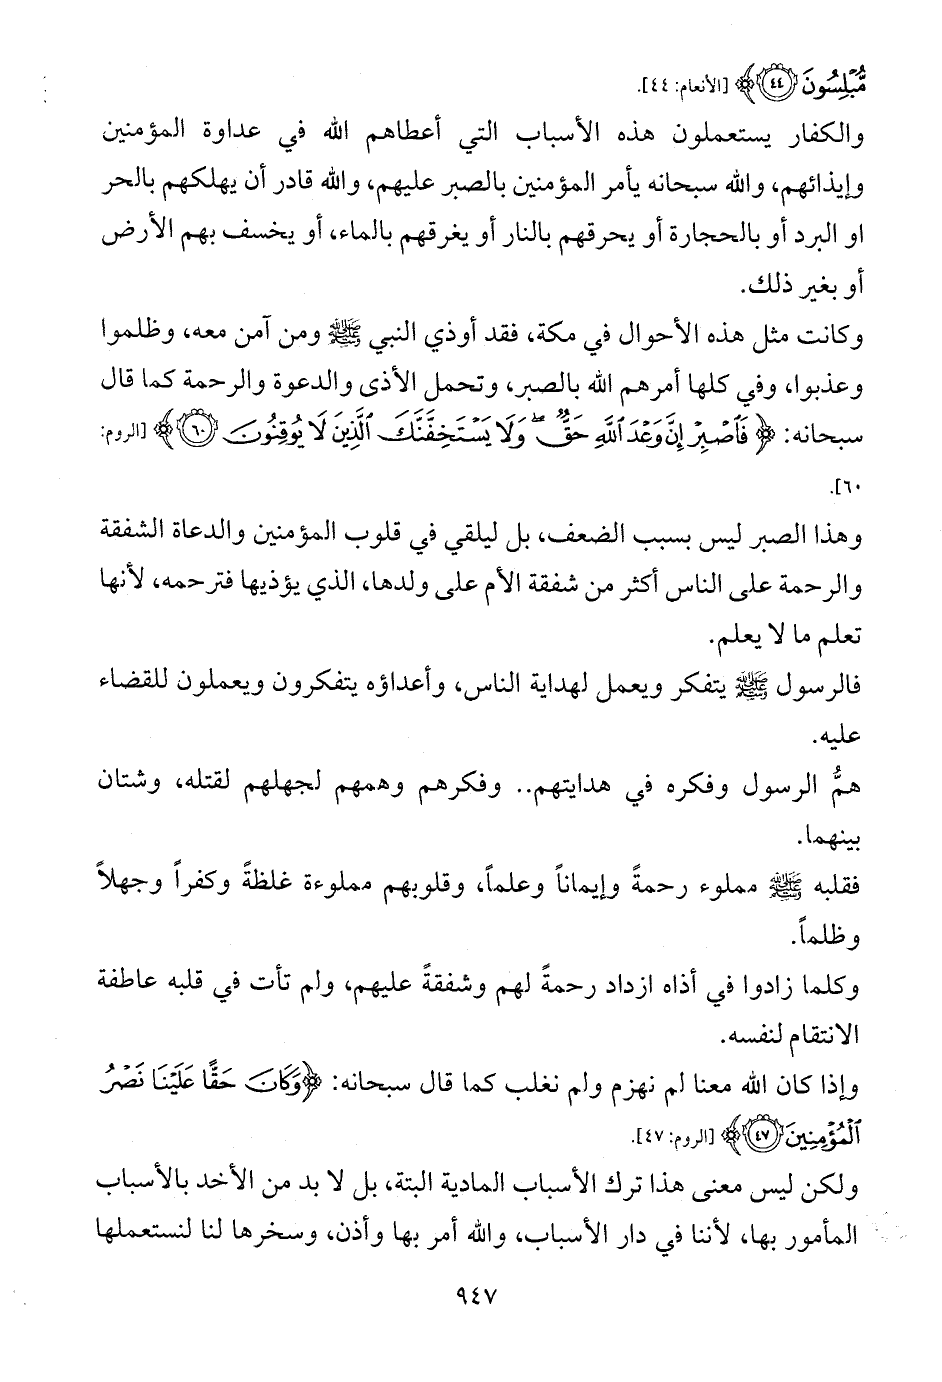 مُّبْلِسُونَ ﴿٤٤﴾ [الأنعام: ٤٤].
والكفار يستعملون هذه الأسباب التي أعطاهم الله في عداوة المؤمنين
وإيذائهم، والله سبحانه يأمر المؤمنين بالصبر عليهم، والله قادر أن يهلكهم بالحر
او البرد أو بالحجارة أو يحرقهم بالنار أو يغرقهم بالماء، أو يخسف بهم الأرض
أو بغير ذلك.
وكانت مثل هذه الأحوال في مكة، فقد أوذي النبي ﷺ ومن آمن معه، وظلموا
وعذبوا، وفي كلها أمرهم الله بالصبر، وتحمل الأذى والدعوة والرحمة كما قال
سبحانه: ﴿فَٱصْبِرْ إِنَّ وَعْدَ ٱللَّهِ حَقٌّ ۖ وَلَا يَسْتَخِفَّنَّكَ ٱلَّذِينَ لَا يُوقِنُونَ ٦٠﴾ [الروم:
٦٠].
وهذا الصبر ليس بسبب الضعف، بل ليلقي في قلوب المؤمنين والدعاة الشفقة
والرحمة على الناس أكثر من شفقة الأم على ولدها، الذي يؤذيها فترحمه، لأنها
تعلم ما لا يعلم.
فالرسول ﷺ يتفكر ويعمل لهداية الناس، وأعداؤه يتفكرون ويعملون للقضاء
عليه.
همُّ الرسول وفكره في هدايتهم.. وفكرهم وهمهم لجهلهم لقتله، وشتان
بينهما.
فقلبه ﷺ مملوء رحمةً وإيماناً وعلماً، وقلوبهم مملوءة غلظةً وكفراً وجهلاً
وظلماً.
وكلما زادوا في أذاه ازداد رحمةً لهم وشفقةً عليهم، ولم تأت في قلبه عاطفة
الانتقام لنفسه.
وإذا كان الله معنا لم نهزم ولم نغلب كما قال سبحانه: ﴿وَكَانَ حَقًّا عَلَيْنَا نَصْرُ
ٱلْمُؤْمِنِينَ ٤٧﴾ [الروم: ٤٧].
ولكن ليس معنى هذا ترك الأسباب المادية البتة، بل لا بد من الأخد بالأسباب
المأمور بها، لأننا في دار الأسباب، والله أمر بها وأذن، وسخرها لنا لنستعملها
٩٤٧